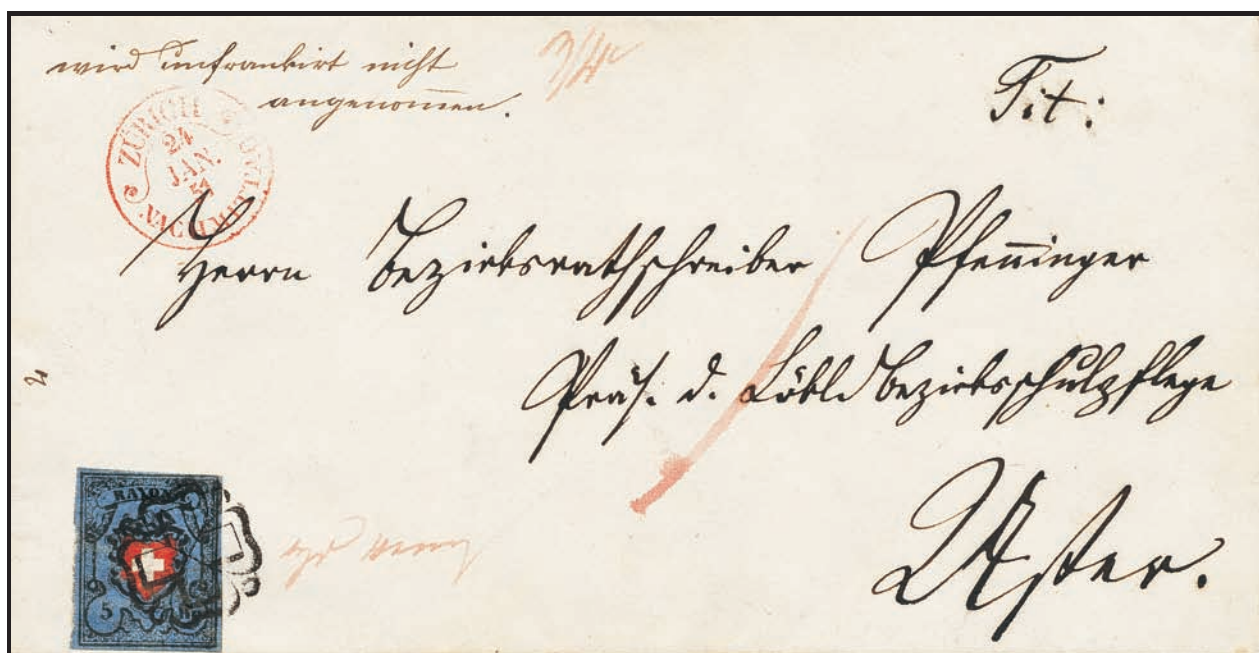 wird unfrankirt nicht
angenommen.
3/4
Tit:
ZÜRICH
24
JAN.
51
NACHMITTAG
Herrn Bezirksrathschreiber Pfenninger
Präs. d. Löbl. Bezirksschulpflege
Uster.
RAYON
5